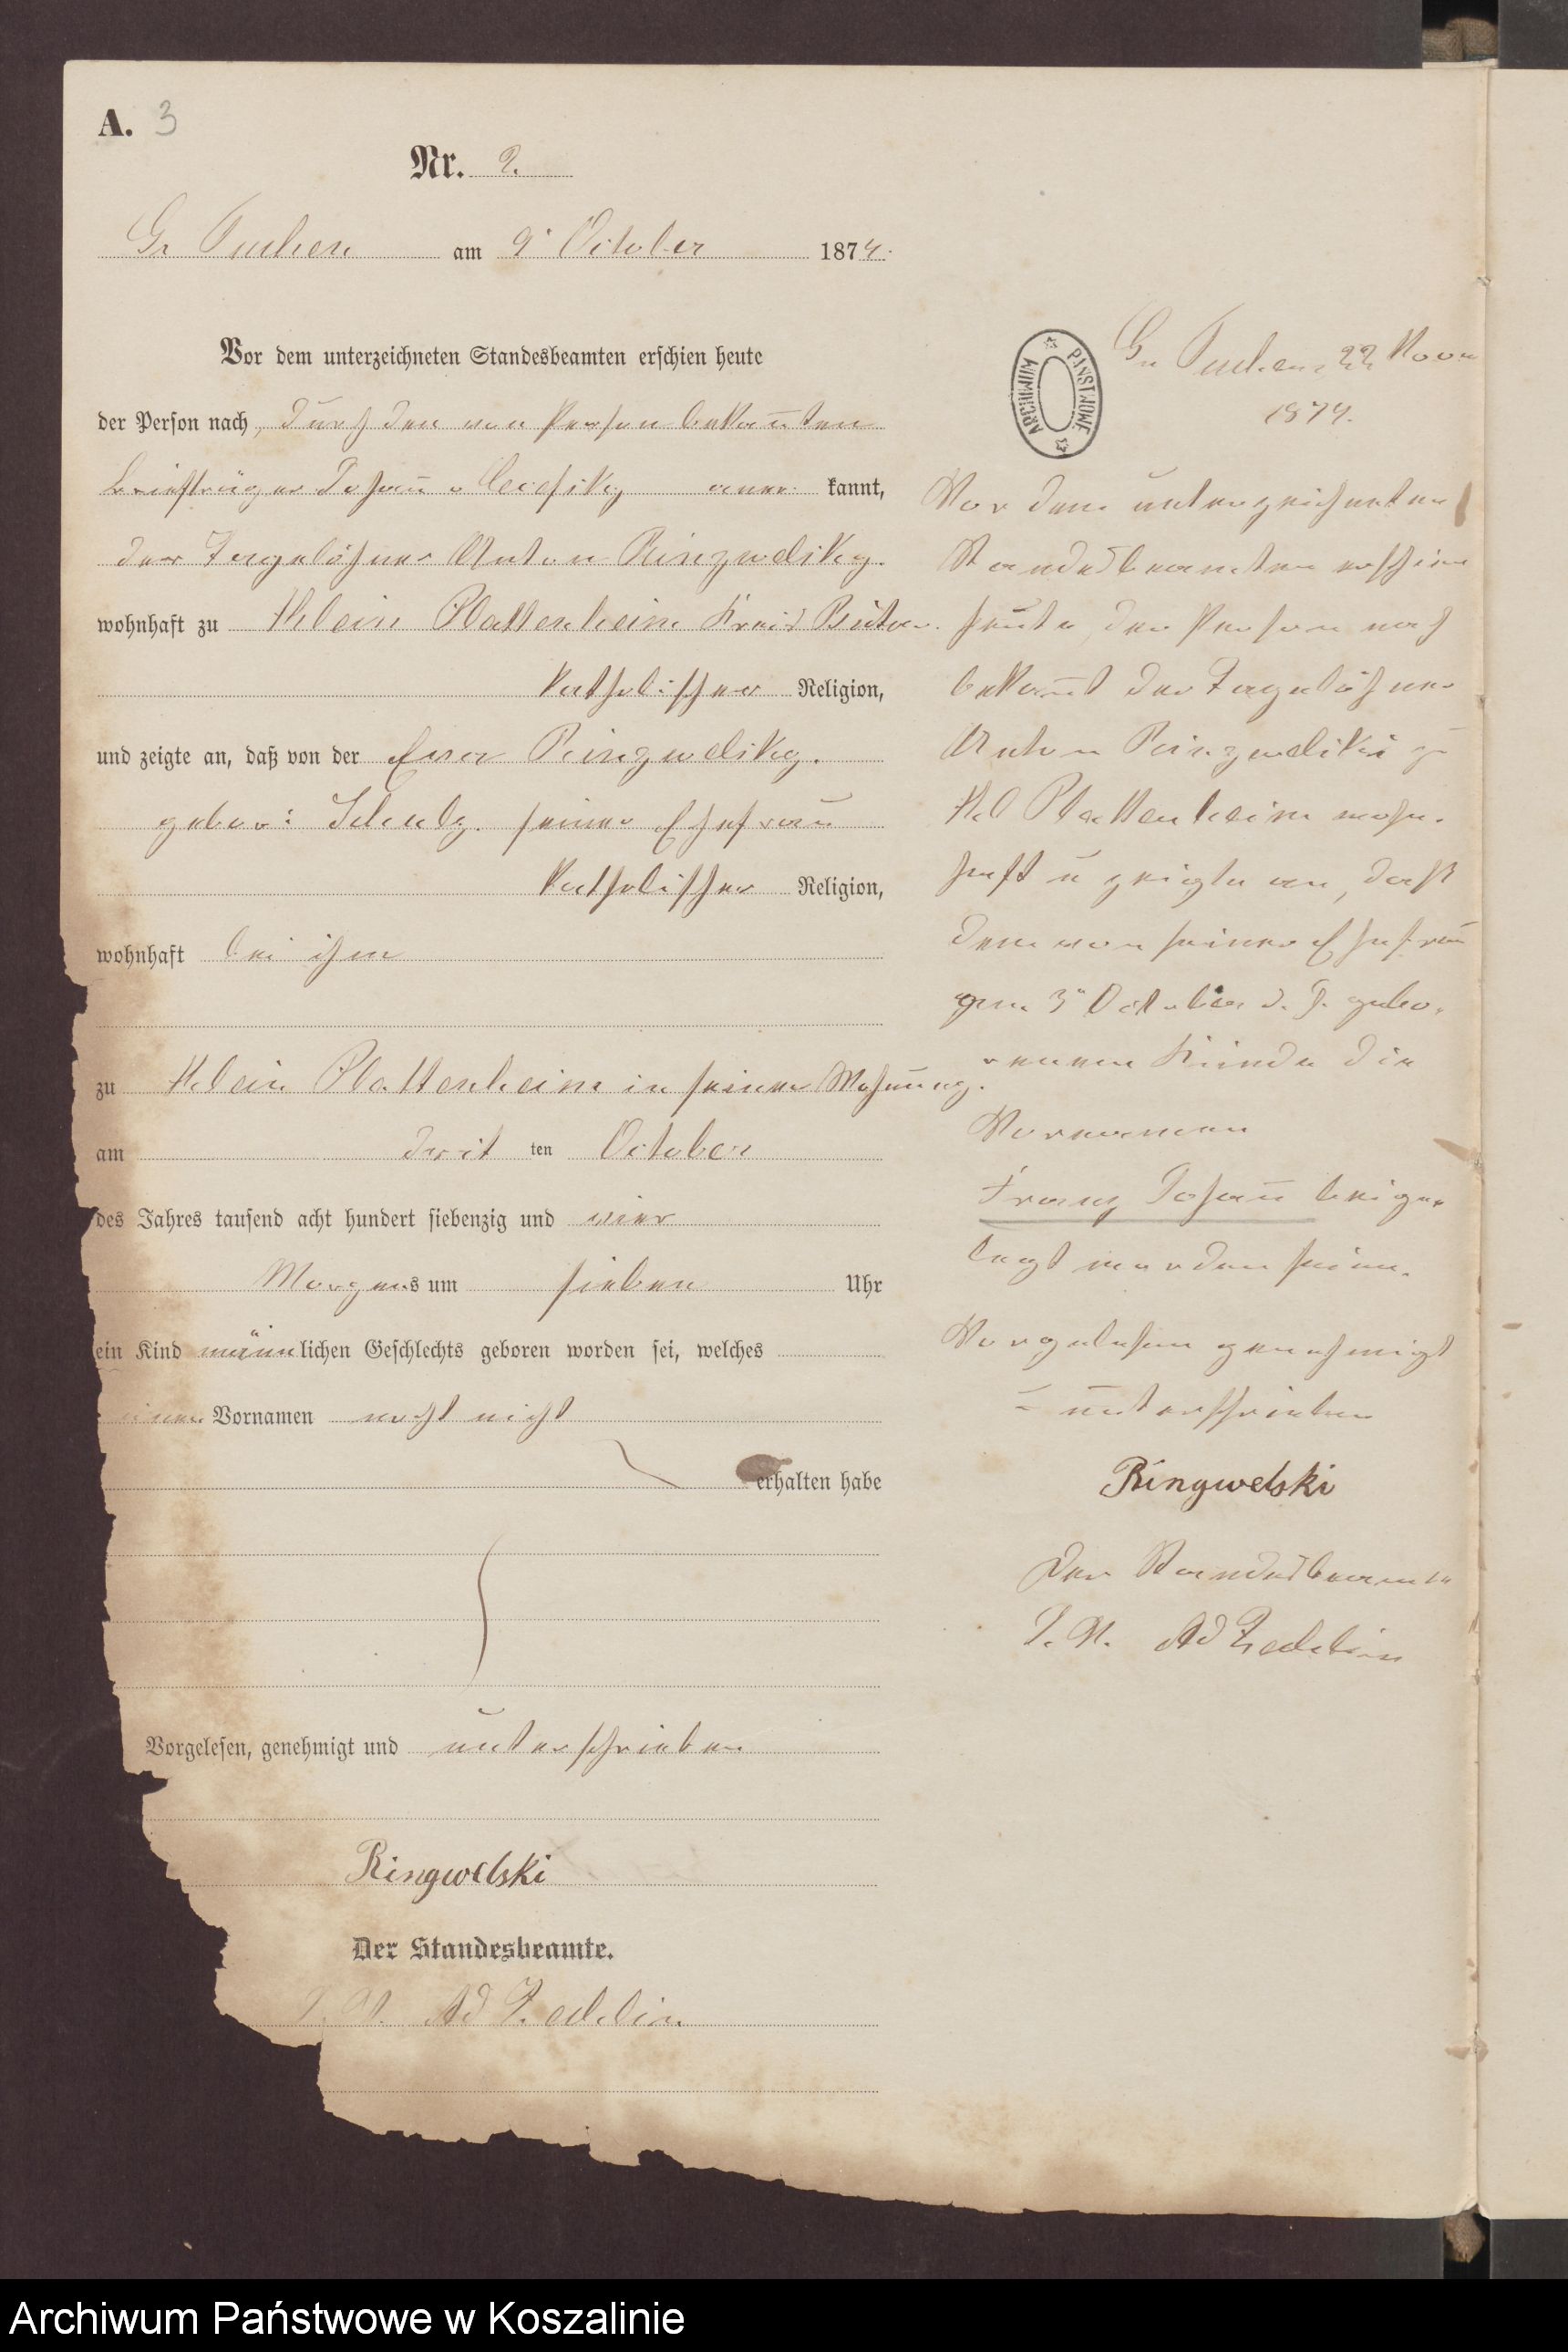 A. 3
Nr. 2.
Gr Tuchen am 9. October 1874.
Vor dem unterzeichneten Standesbeamten erschien heute
der Person nach, durch den von Person bekannten
Briefträger Johann v anerkannt,
der Tagelöhner Anton Ringwelsky.
wohnhaft zu Klein Plattenheim Kreis Bütow.
katholischer Religion,
und zeigte an, daß von der Eva Ringwelsky.
gebor: Schulz. seiner Ehefrau
katholischer Religion,
wohnhaft bei ihm
zu Klein Plattenheim in seiner Wohnung.
am dritten October
des Jahres tausend acht hundert siebenzig und vier
Morgens um sieben Uhr
ein Kind männlichen Geschlechts geboren worden sei, welches
einen Vornamen noch nicht
erhalten habe
Vorgelesen, genehmigt und unterschrieben
Ringwelski
Der Standesbeamte.
I. V. Ad Zedelin
Gr Tuchen, 22 Novr
1874.
ARCHIWUM PAŃSTWOWE
Vor dem unterzeichneten
Standesbeamten erschien
heute, der Person nach
bekannt der Tagelöhner
Anton Ringwelski zu
Kl Plattenheim wohn-
haft u zeigte an, daß
dem von seiner Ehefrau
am 3ten October d. J. gebo-
renen Kinde die
Vornamen
Franz Johann beige-
legt worden seien.
Vorgelesen genehmigt
u unterschrieben
Ringwelski
Der Standesbeamte
I. V. Ad Zedelin
Archiwum Państwowe w Koszalinie